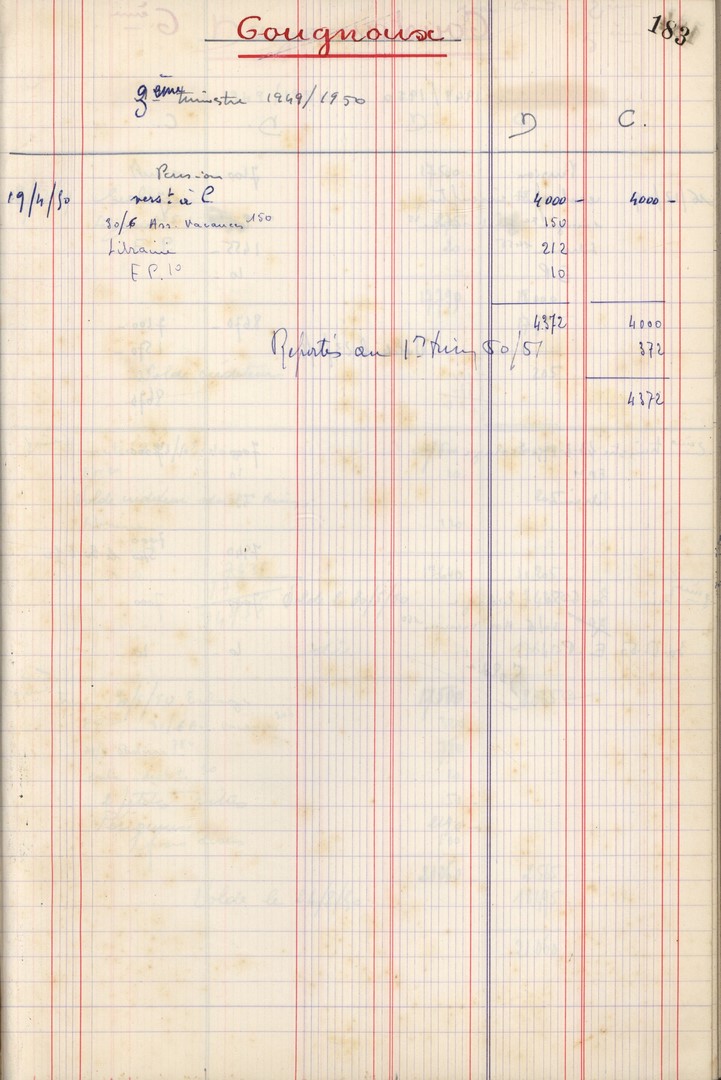 Gougnoux
183
3ème trimestre 1949/1950
D C.
Pension
19/4/50 verst à C 4000 - 4000 -
30/6 Ass. Vacances 150 150
Librairie 212
E P. 10 10
4372 4000
Reportés au 1er trim 50/51 372
4372